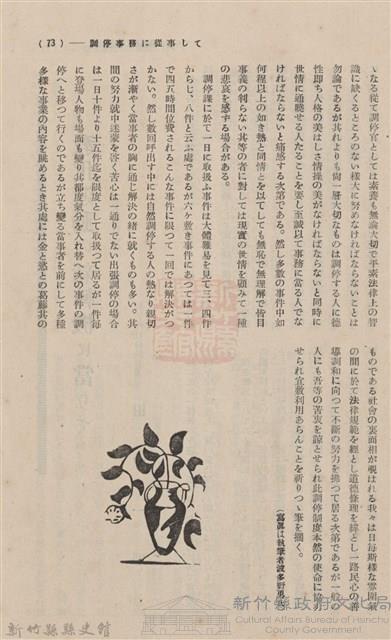 (73)——調停事務に從事して
ゝなる從て調停官としては素養も無論大切で平素法律上の智
識に缺くるところのない樣大に努めなければならないことは
勿論であるが其れよりも尙一層大切なものは調停する人に德
性即ち人格の美はしさ情操の美がなければならないと同時に
世情に通曉せる人たることを要し至誠以て事務に當るんでな
ければならないと痛感する次第である。然し多數の事件中如
何程以上の如き熱と同情とを以てしても無恥で無理解で皆目
事義の判らない其等の者に對しては現實の世情を顧みて一種
の悲哀を感ずる場合がある。
調停課に於て一日に取扱ふ事件は大體難易を見て三、四件
から七、八件と云ふ處であるが六ヶ敷き事件にあつては一件
で四五時間位費されるこんな事件に限つて一回では解決がつ
かない。然し數回呼出す中には自然調停する人の熱なり親切
さが漸やく當事者の胸に通じ解決の緖に就くものも多い。其
間の努力就中迷蒙を啓く苦心は一通りでない出張調停の場合
は一日十件より十五件迄を限度として取扱つて居るが一件每
に登場人物も場面も變り其都度氣分を入れ替へ次の事件の調
停へと移つて行くのであるが立ち變る當事者を前にして多種
多樣な事案の內容を眺めるとき其處には金と慾との葛藤其の
ものである社會の裏面相が覗はれる我々は日每斯樣な雰圍氣
の間に於て法律規範を經とし道德條理を緯とし一路民心の善
導調和に向つて不斷の努力を拂つて居る次第であるが一般の
人にも吾等の苦衷を諒とせられ此調停制度本然の使命に協力
せられ宜敷利用あらんことを祈りつゝ筆を擱く。
(寫眞は執筆者波多野勇氏)
新竹縣縣史館
新竹縣政府文化局
Cultural Affairs Bureau of Hsinchu
County Government